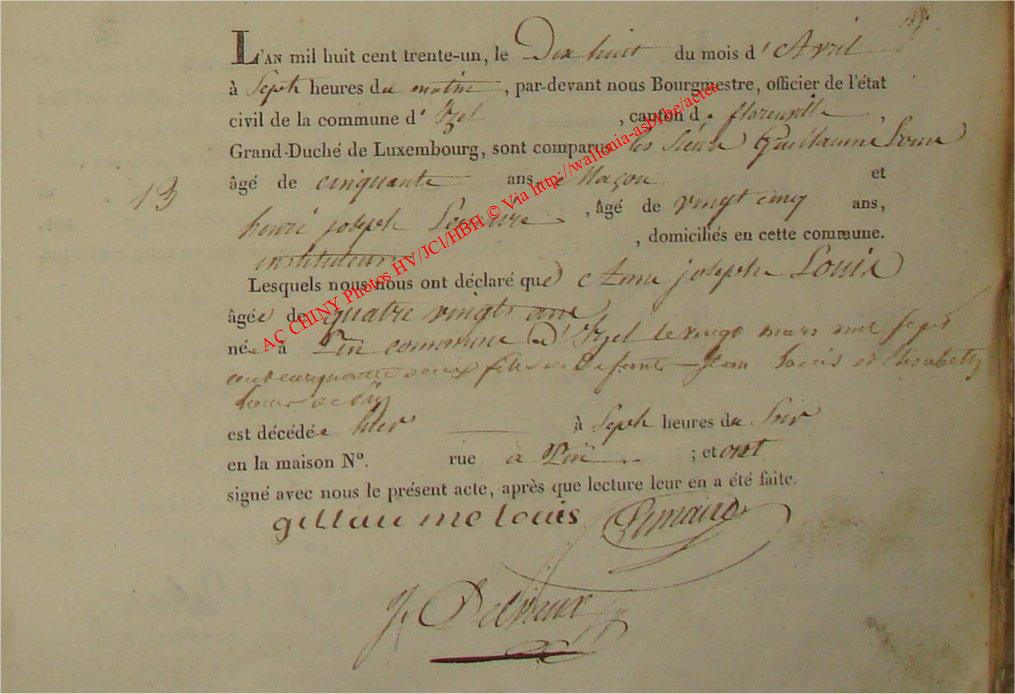 L'AN mil huit cent trente-un, le Dix huit du mois d'Avril
à Sept heures du matin, par-devant nous Bourgmestre, officier de l'état
civil de la commune d'Izel, canton de florenville,
Grand-Duché de Luxembourg, sont comparus les Sieurs Guillaume Louis
âgé de cinquante ans, Maçon et
13
henri joseph Lemaire, âgé de vingt cinq ans,
instituteur, domiciliés en cette commune.
Lesquels nous nous ont déclaré que Anne josephe Louis
âgée de quatre vingts ans
née à Pin commune d'Izel le vingt mars mil sept
cent cinquante fille de Defunts Jean Louis et Elisabeth
de Pin
est décédée hier à Sept heures du Soir
en la maison N°. rue à Pin ; et ont
signé avec nous le présent acte, après que lecture leur en a été faite.
gillaume louis Lemaire
J. Delvaux
AC CHINY Photos HV/JCl/HBH © Via http://wallonia-asbl.be/actes